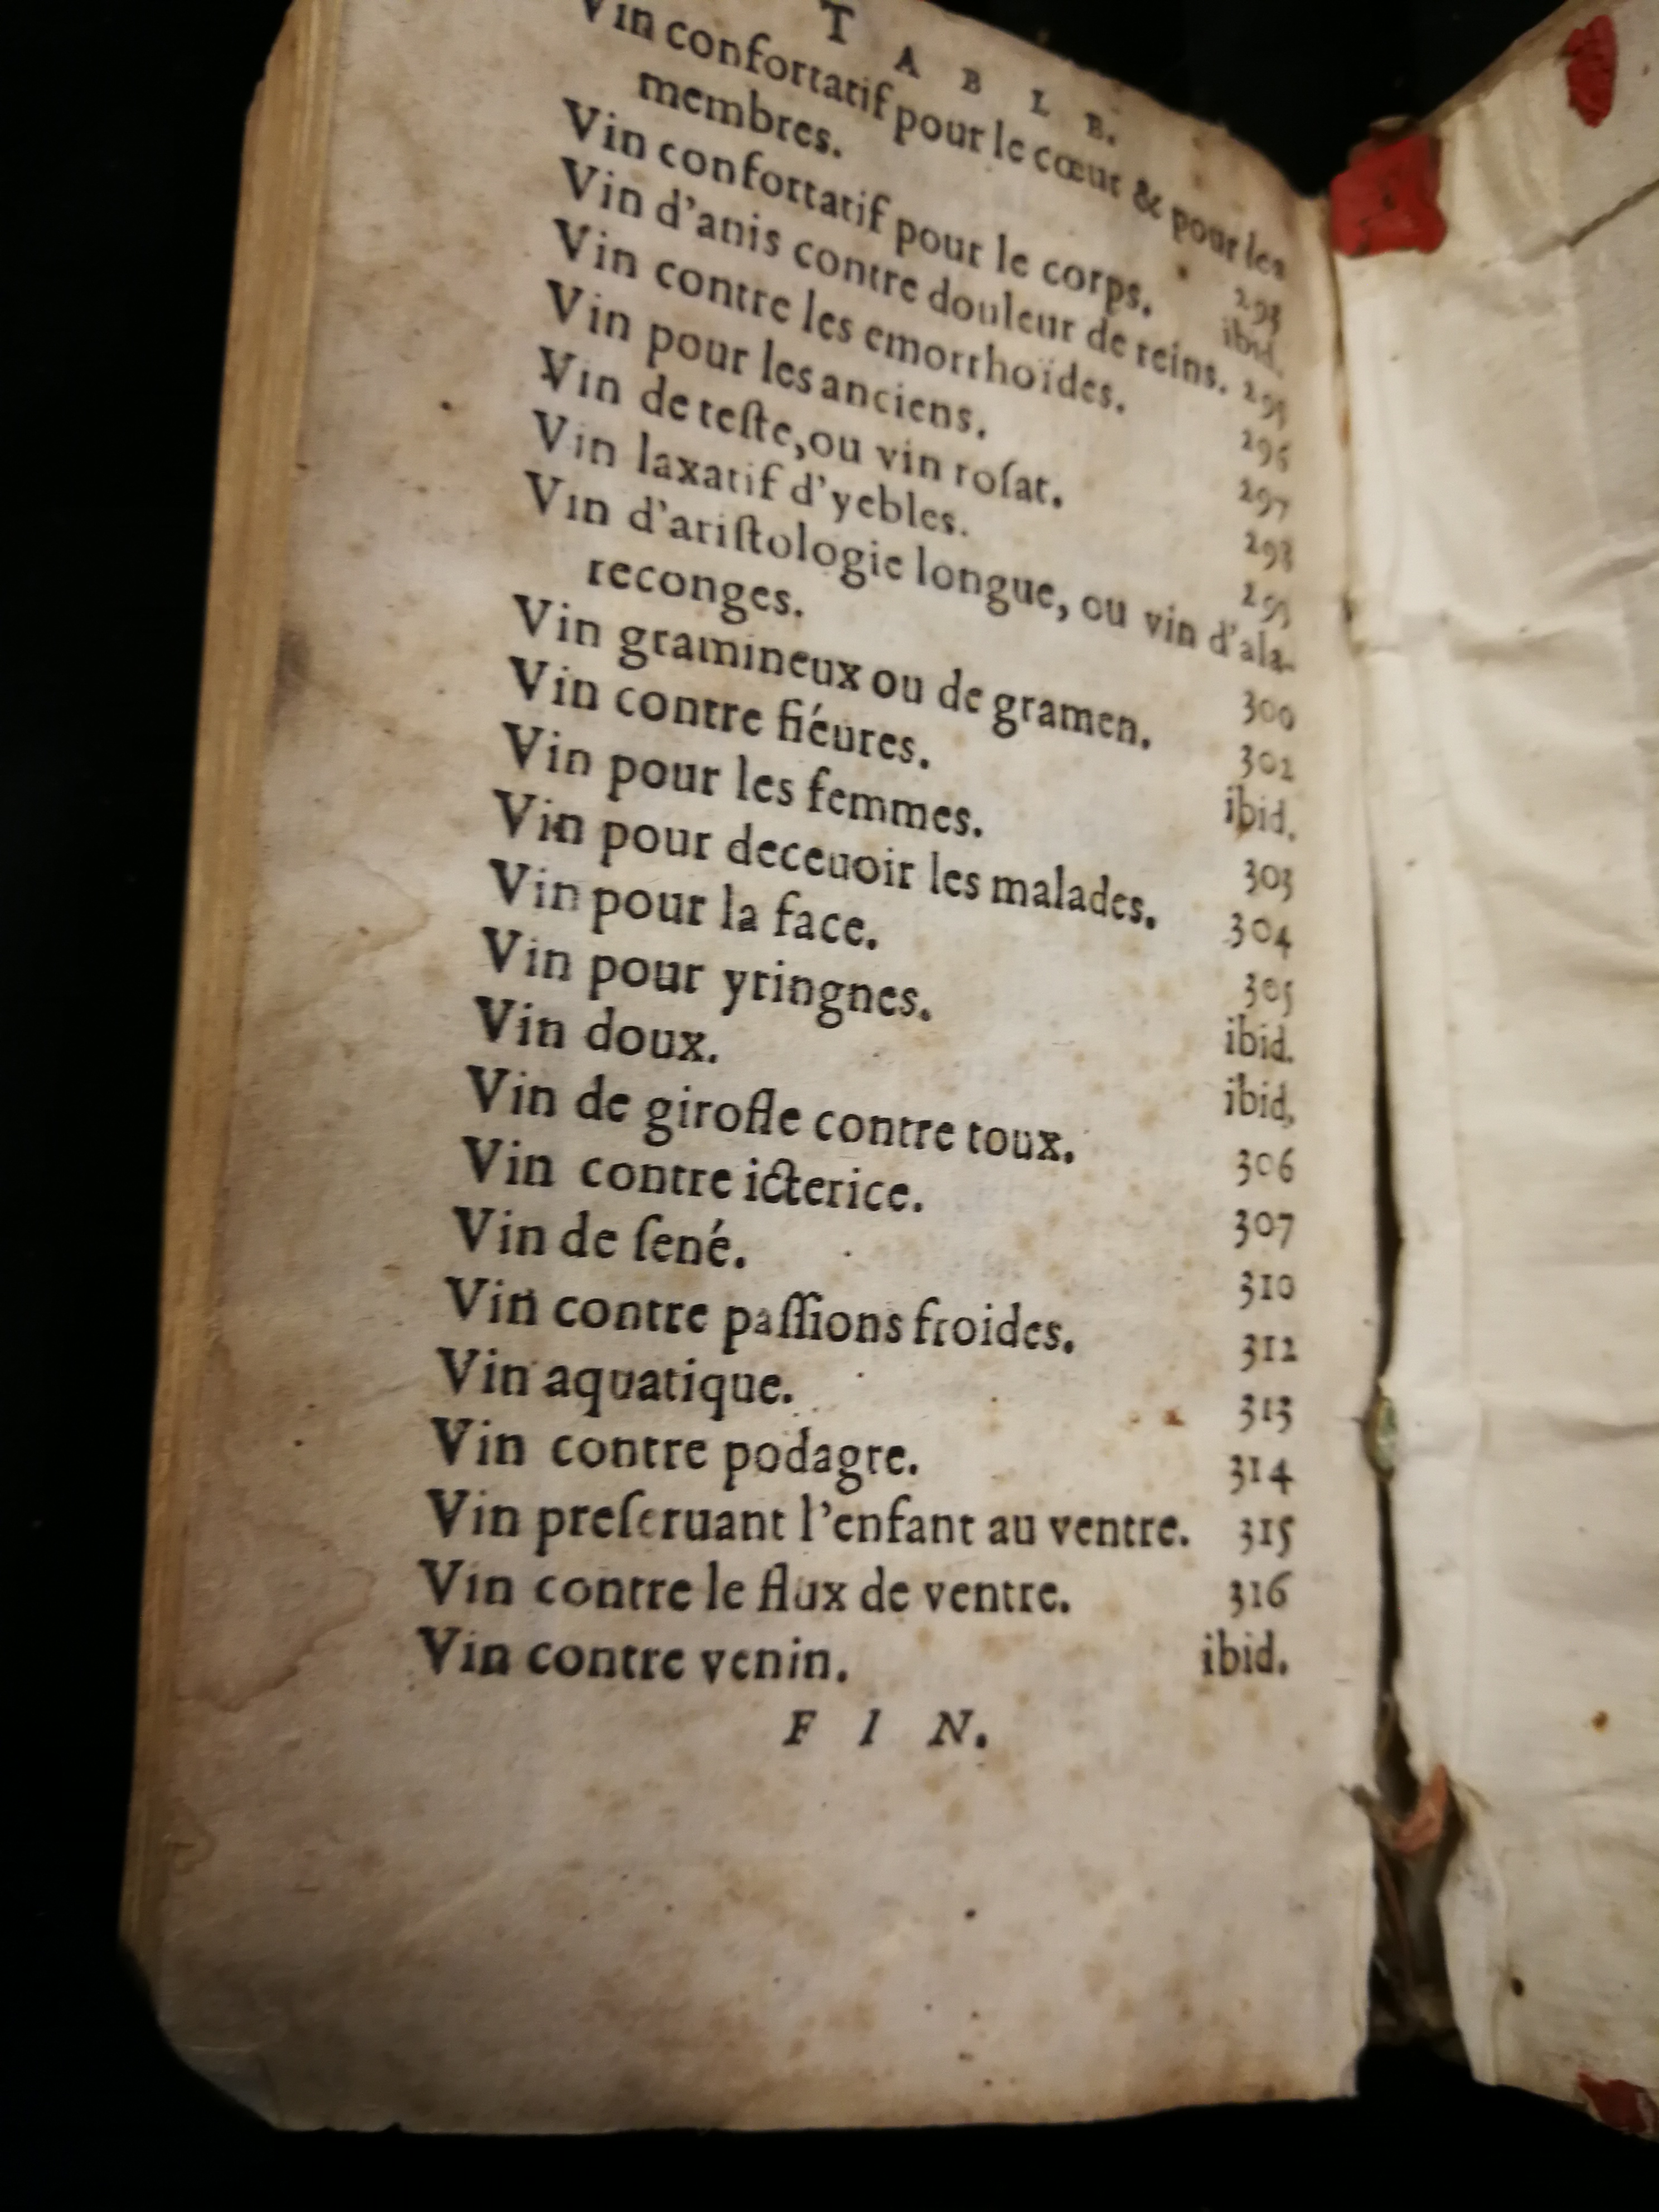 TABLE.
Vin confortatif pour le cœur & pour les
membres. 293
Vin confortatif pour le corps. ibid.
Vin d'anis contre douleur de reins. 295
Vin contre les emorrhoïdes. 296
Vin pour les anciens. 297
Vin de teſte, ou vin roſat. 298
Vin laxatif d'yebles. 299
Vin d'ariſtologie longue, ou vin d'ala-
reconges. 300
Vin gramineux ou de gramen. 302
Vin contre fiéures. ibid.
Vin pour les femmes. 303
Vin pour deceuoir les malades. 304
Vin pour la face. 305
Vin pour yringnes. ibid.
Vin doux. ibid,
Vin de girofle contre toux. 306
Vin contre icterice. 307
Vin de ſené. 310
Vin contre paſſions froides. 312
Vin aquatique. 313
Vin contre podagre. 314
Vin preſeruant l'enfant au ventre. 315
Vin contre le flux de ventre. 316
Vin contre venin. ibid.
FIN.